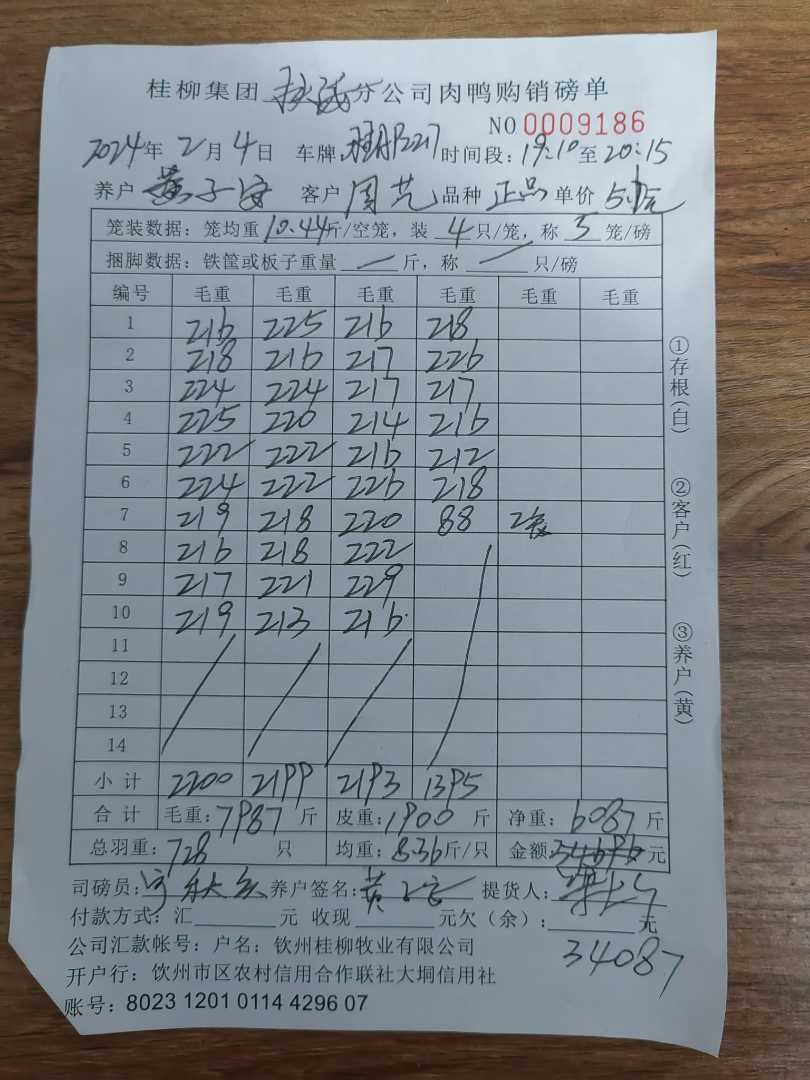 桂柳集团 分公司肉鸭购销磅单
NO 0009186
2024年2月4日 车牌: 时间段:19:10至20:15
养户 黄子安 客户 周艺 品种 正品 单价
笼装数据: 笼均重10.44斤/空笼, 装4只/笼, 称5笼/磅
捆脚数据: 铁筐或板子重量 一 斤, 称 一 只/磅
编号 毛重 毛重 毛重 毛重 毛重 毛重
1 216 225 216 218
2 218 216 217 226
3 224 224 217 217
4 225 220 214 216
5 222 222 216 212
6 224 222 226 218
7 219 218 220 88 2笼
8 216 218 222
9 217 221 229
10 219 213 216
11
12
13
14
小计 2200 2199 2193 1395
合计 毛重:7987斤 皮重:1900斤 净重:6087斤
总羽重:728只 均重:8.36斤/只 金额34696元
司磅员: 养户签名:黄子安 提货人:
付款方式:汇 元 收现 元欠(余): 元
34087
公司汇款帐号: 户名: 钦州桂柳牧业有限公司
开户行: 钦州市区农村信用合作联社大垌信用社
账号: 8023 1201 0114 4296 07
①存根(白)
②客户(红)
③养户(黄)